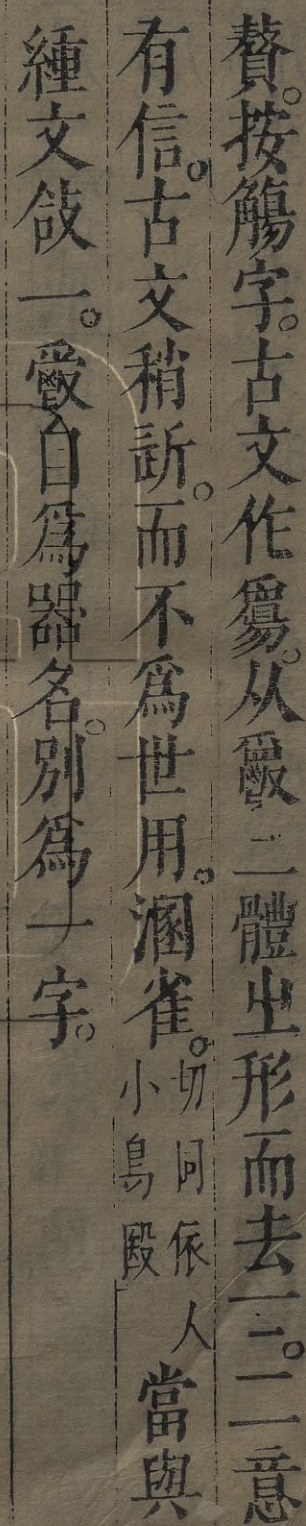 贅。按觴字。古文作𥏻。从爵二體㞢形而去一。二意
有信。古文稍訢。而不爲世用。溷雀。切同依人小鳥殹當與
緟文敆一。爵自爲器名。別爲一字。